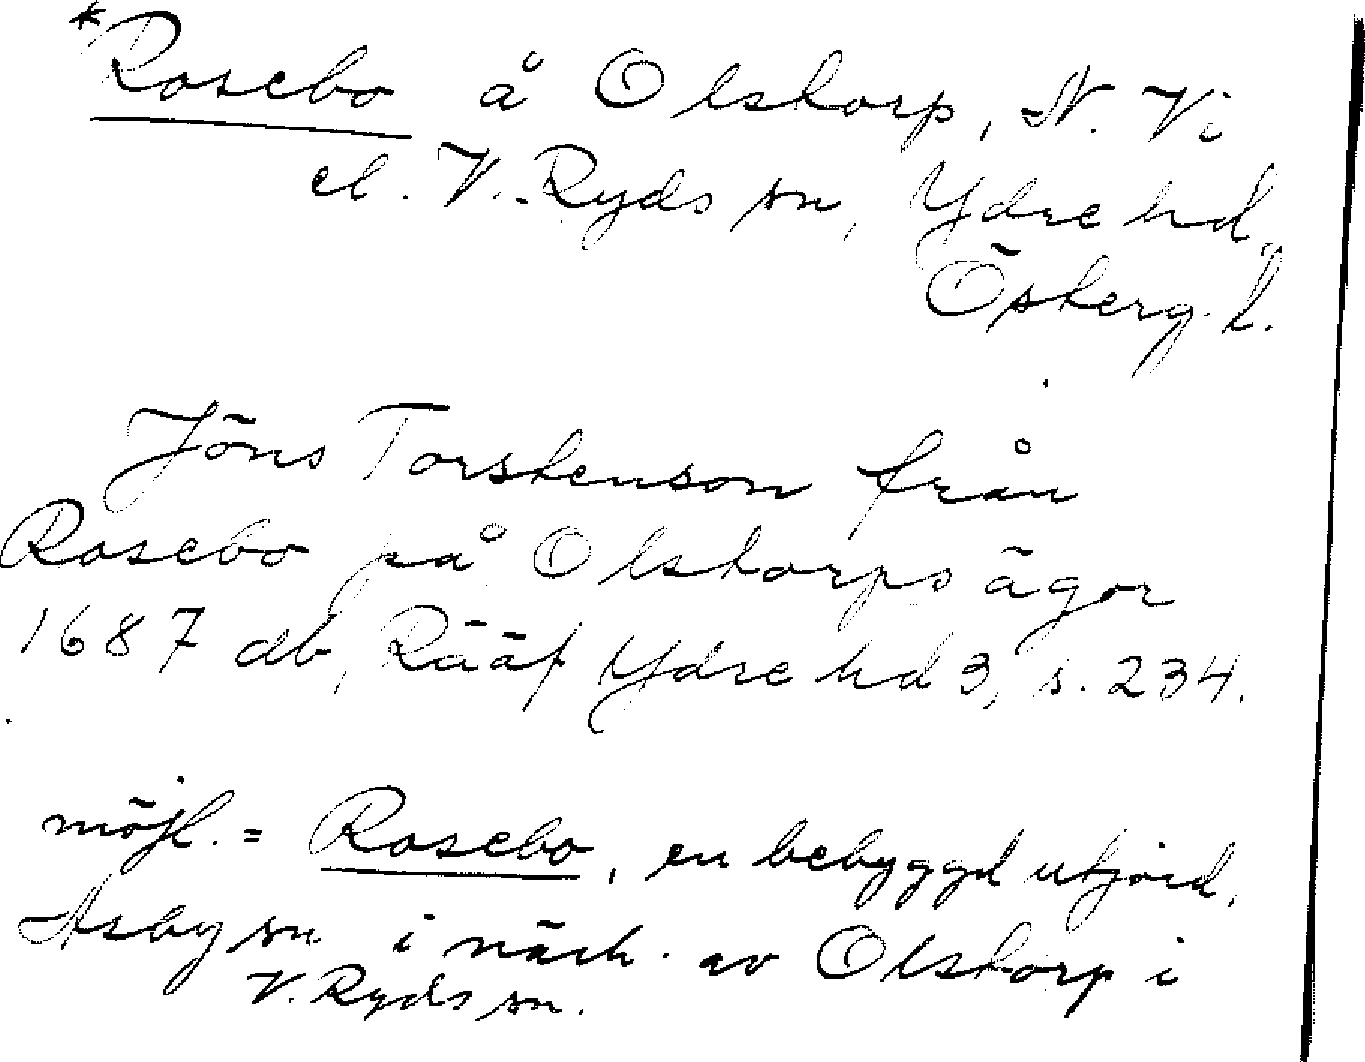 *Rosebo å Olstorp, N. Vi
el. V. Ryds sn, Ydre hd,
Österg. l.
Jöns Torstenson från
Rosebo på Olstorps ägor
1687 db, Rääf Ydre hd 3, s. 234.
möjl. = Rosebo, en bebyggd utjord,
Asby sn i närh. av Olstorp i
V. Ryds sn.